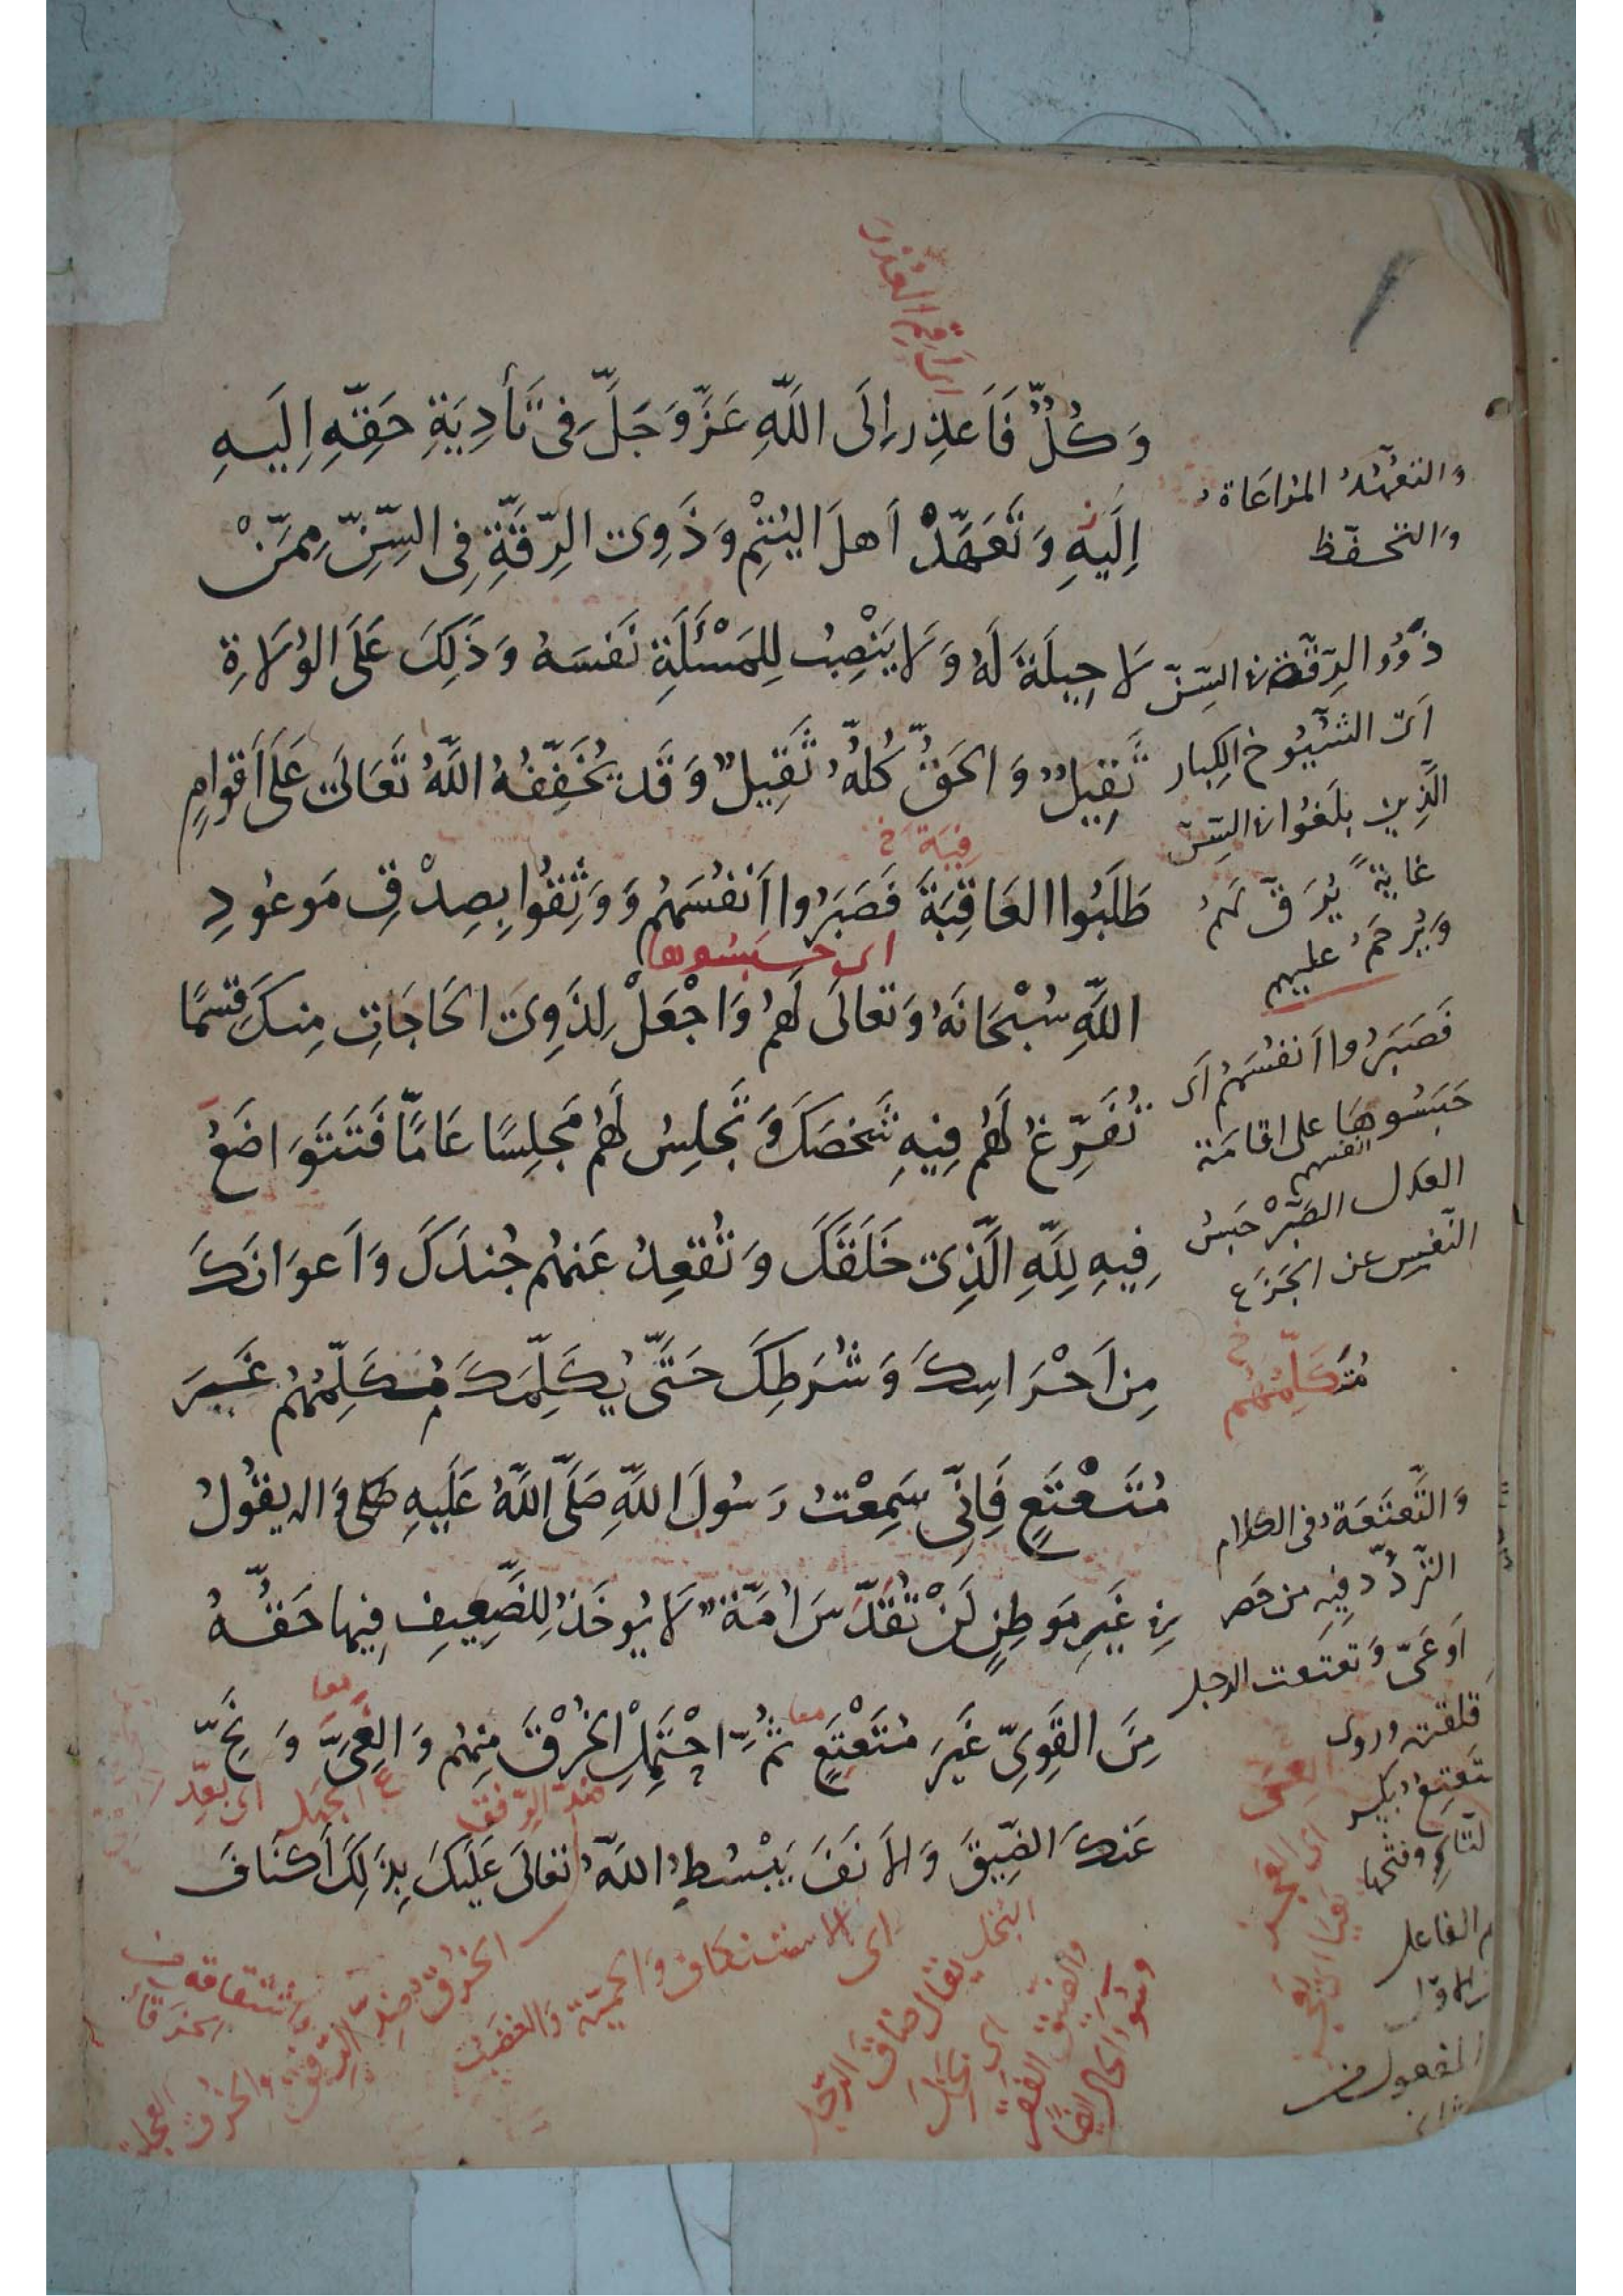 اى اقم العذر
وَكُلٌّ فَاَعذِر اِلَى اللّهِ عَزَّوَجَلَّ فِى تَأدِيَةِ حَقِّهِ اِلَيهِ
اِلَيهِ وَتَعَهَّدْ اَهلَ اليُتْمِ وَذَوِى الرِّقَّةِ فِى السِّنِّ مِمَّنْ
لَا حِيلَةَ لَهُ وَلَا يَنْصِبُ لِلمَسْئَلَةِ نَفسَهُ وَذَلِكَ عَلَى الوُلَاةِ
ثَقِيلٌ وَالحَقُّ كُلُّهُ ثَقِيلٌ وَقَد يُخَفِّفُهُ اللَّهُ تَعَالَى عَلَى اَقوَامٍ
فِيَة خ
طَلَبُوا العَاقِبَةَ فَصَبَرُوا اَنْفُسَهُم وَوَثِقُوا بِصِدْقِ مَوعُودِ
اى حبسوها
اللَّهِ سُبْحَانَهُ وَتَعَالَى لَهُم وَاجْعَلْ لِذَوِى الحَاجَاتِ مِنكَ قِسمًا
تُفَرِّغُ لَهُم فِيهِ شَخصَكَ وَتَجلِسُ لَهُم مَجلِسًا عَامًّا فَتَتَوَاضَعُ
فِيهِ لِلّهِ الَّذِى خَلَقَكَ وَتُقعِدُ عَنهُم جُندَكَ وَاَعوَانَكَ
مِن اَحْرَاسِكَ وَشُرَطِكَ حَتَّى يُكَلِّمَكَ مُكَلِّمُهُم غَيرَ
مُتَعْتَعٍ فَاِنِّى سَمِعْتُ رَسُولَ اللّهِ صَلَّى اللَّهُ عَلَيهِ وَاله يَقُولُ
فِى غَيرِ مَوطِنٍ لَنْ تُقَدَّسَ اُمَّةٌ لَا يُوخَذُ لِلضَّعِيفِ فِيها حَقُّهُ
معا
معا
مِنَ القَوِىِّ غَيرَ مُتَعْتَعٍ ثُمَّ احْتَمِلِ الخُرْقَ مِنهُم وَالعِىَّ وَنَحِّ
ضد الرفق
الجهل
اى بَعِّد
عَنكَ الضِّيقَ وَالاَنَفَ يَبْسُطِ اللّهُ تعَالَى عَلَيكَ بِذَلِكَ اَكنَافَ
وَالتعَهُّدُ المُرَاعَاة
وَالتحفّظ
ذوُو الرِّقَّة فى السِّنّ
اَى الشُيُوخ الكِبار
الَّذِين بلَغُوا فى السِّنّ
غايَةً يُرَقّ لهُم
وَيُرحَمُ عليهم
فَصَبَرُوا اَنفُسَهُم اَى
حَبَسُوهَا على اقامَة
العدل الصَّبْرُ حَبسُ
النّفسِ عن الجَزَع
مُتَكَلِّمُهُم خ
وَالتَّعتَعَة فى الكلام
التّردُّد فِيهِ من حَصر
اَو عَىّ وَتعتعت الرجل
قلقته وروى
تَعتِع بكسر
التاءِ وفتحها
الفاعل
الاول
المفعول من
الثانى
اى الاستنكاف وَالحميّة وَالغضب
الخُرق ضد الرّفق
البخل يقال ضاق الرّجل
اى بخل
والضيق الفقر
وسُوءُ الحال ايضًا